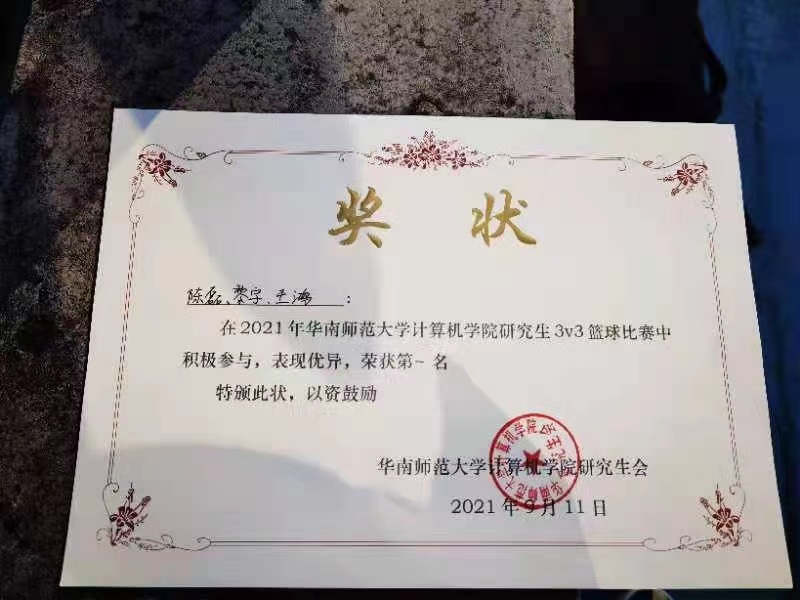 奖 状
陈磊、黎宇、王鸿：
在2021年华南师范大学计算机学院研究生3v3篮球比赛中
积极参与，表现优异，荣获第一名
特颁此状，以资鼓励
华南师范大学计算机学院研究生会
2021年9月11日
华南师范大学计算机学院研究生会